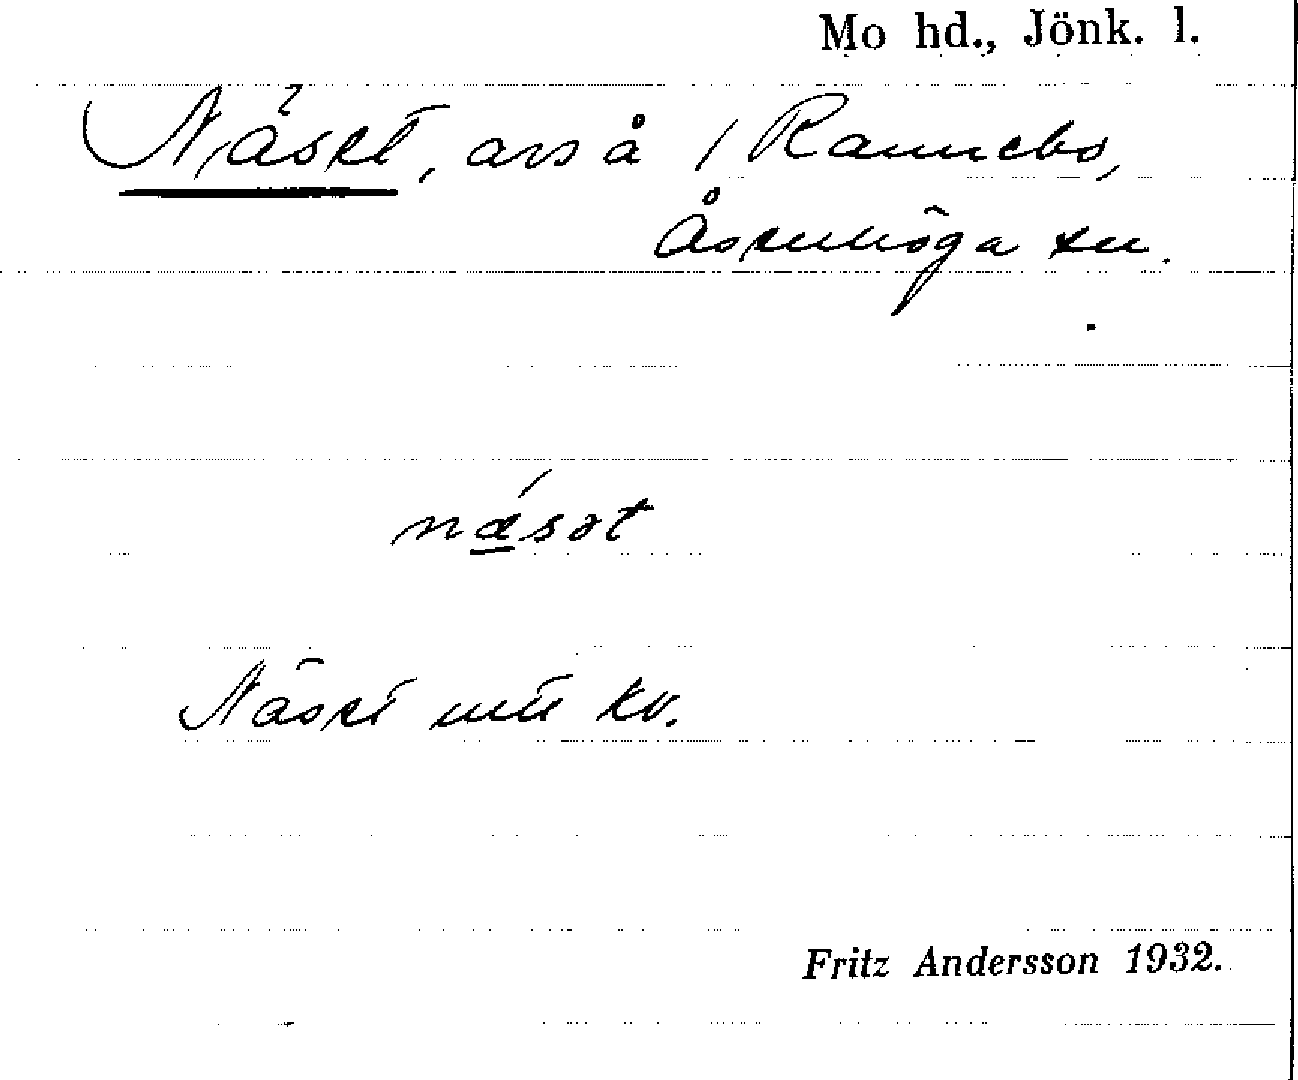 Mo hd., Jönk. l.
Näset, avs å / Rannebo,
Åsenhöga sn.
näsət
Näset utt kv.
Fritz Andersson 1932.